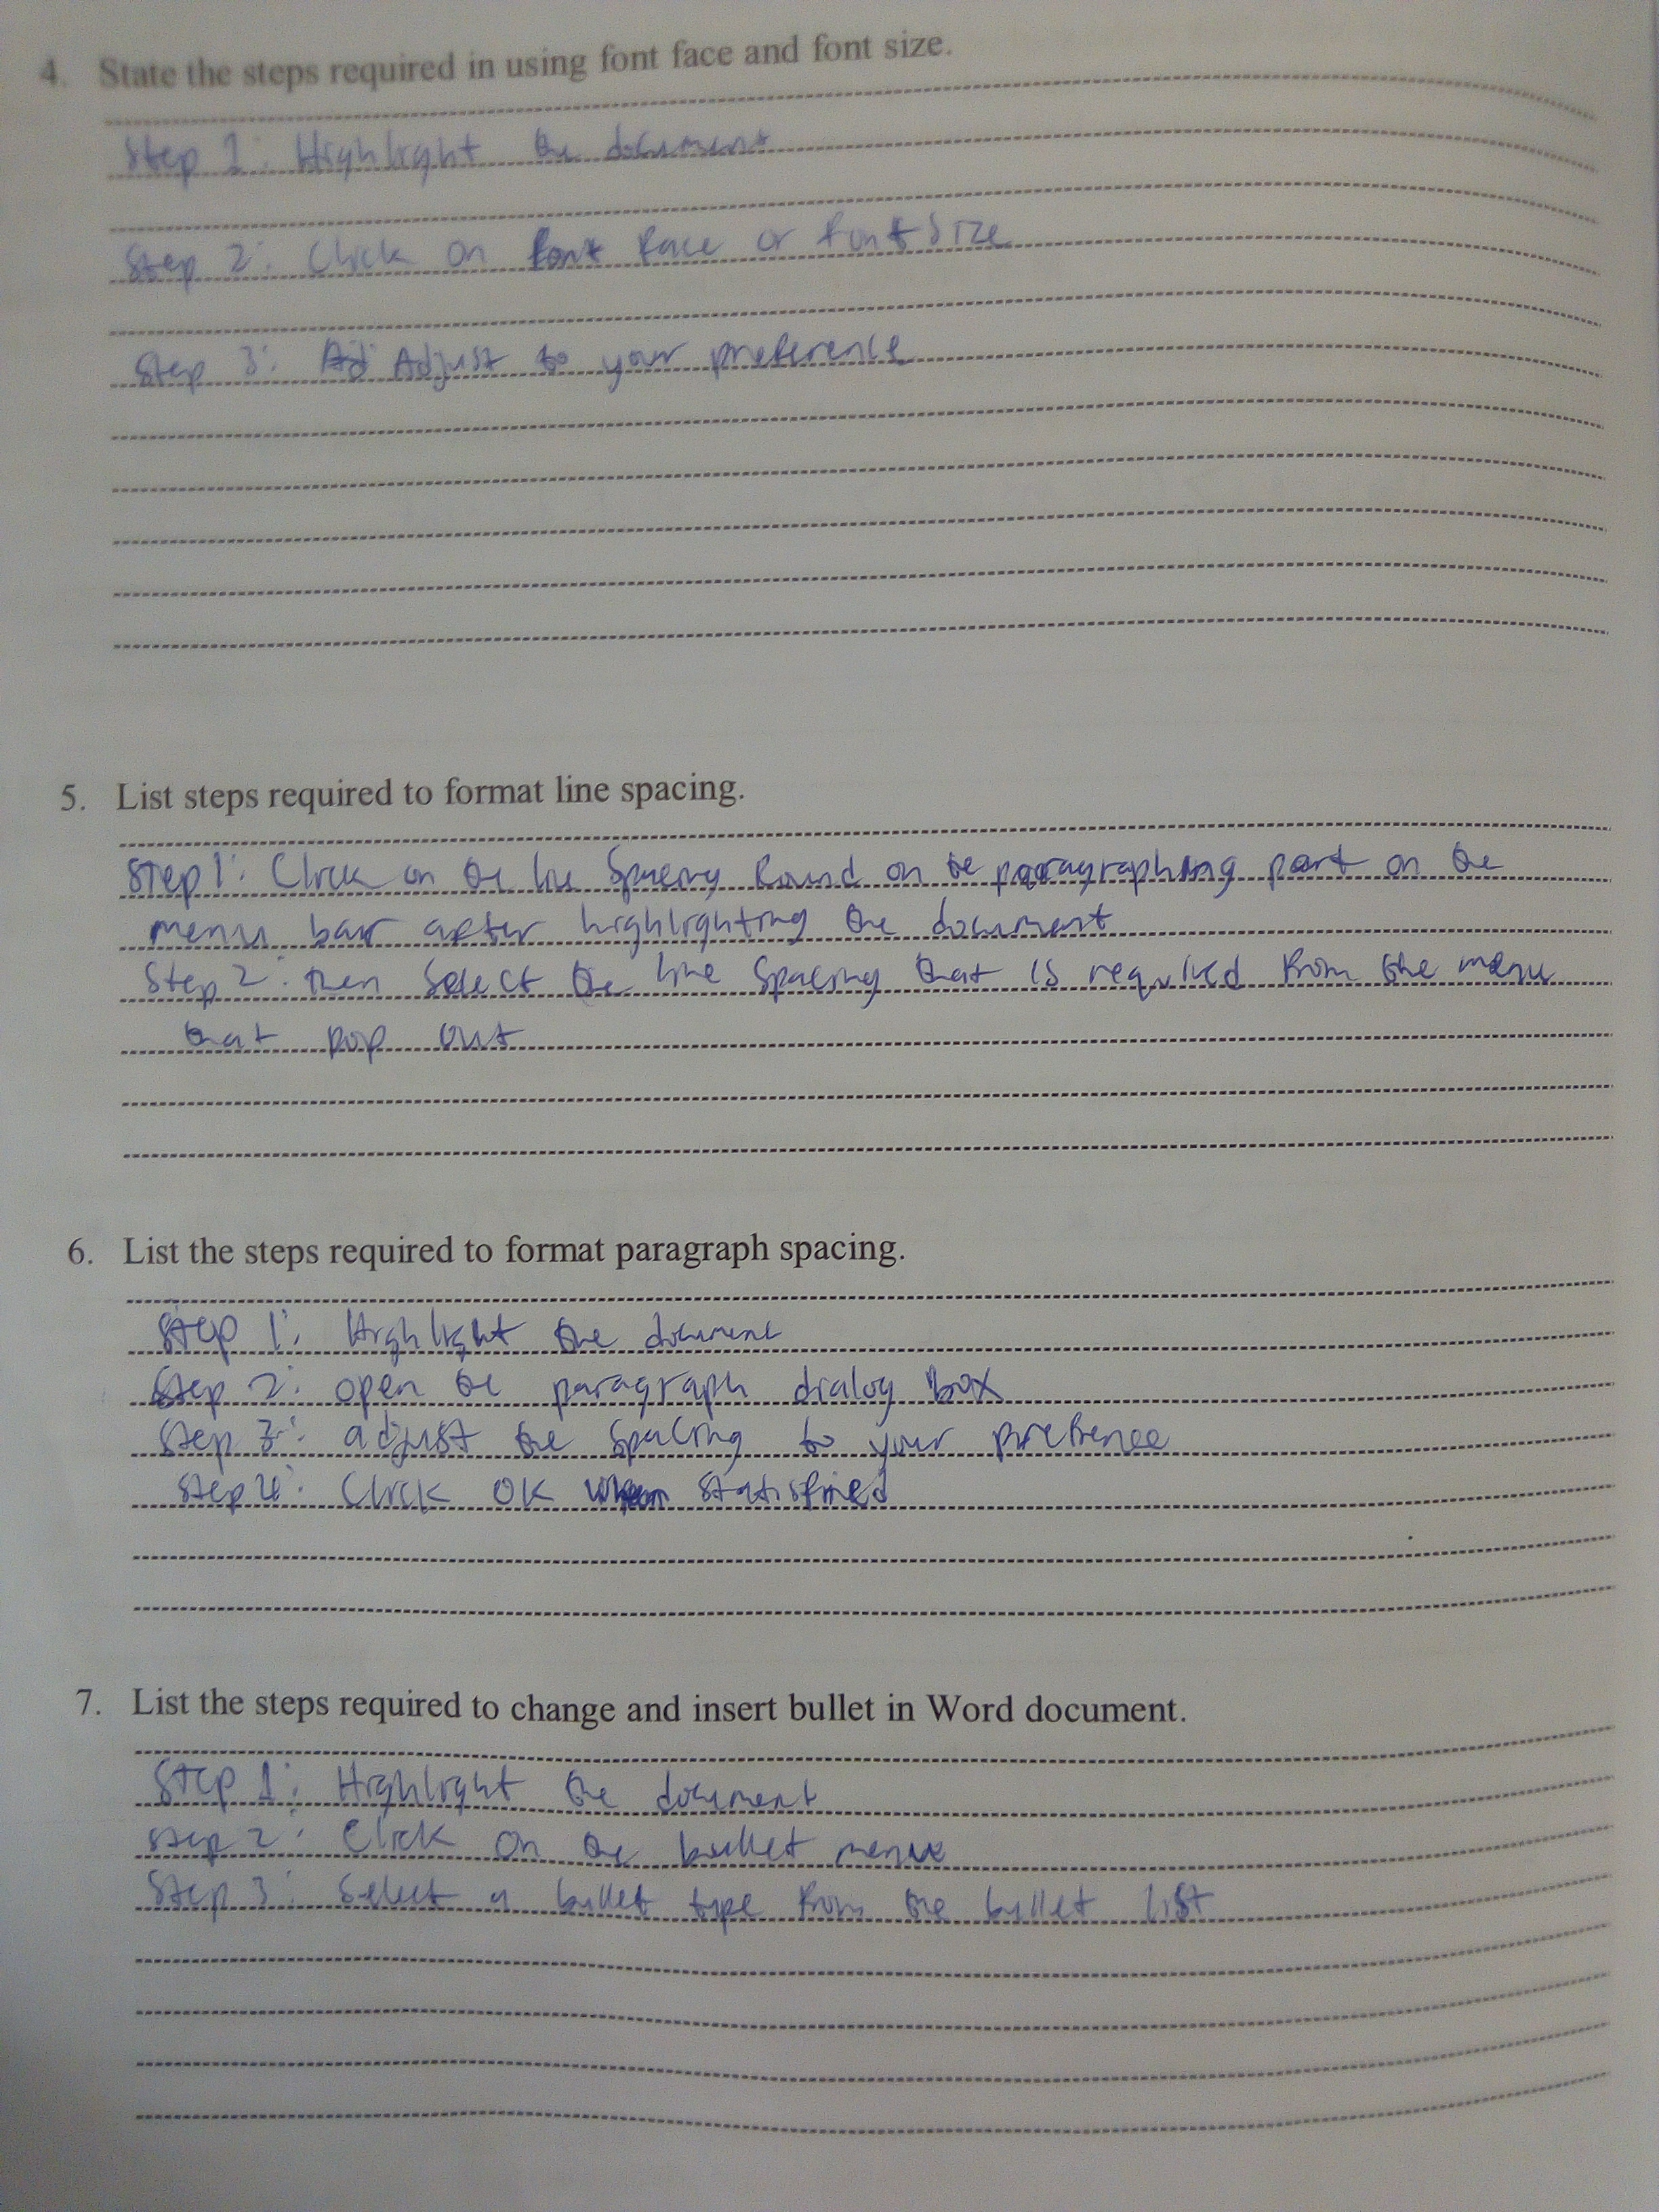 4. State the steps required in using font face and font size.
Step 1: Highlight the document
Step 2: Click on font face or font size
Step 3: Ad Adjust to your preference
5. List steps required to format line spacing.
Step 1: Click on the line Spacing found on the paragraphing part on the
menu bar after highlighting the document
Step 2: then Select the line Spacing that is required from the menu
that pop out
6. List the steps required to format paragraph spacing.
Step 1: Highlight the document
Step 2: open the paragraph dialog box
Step 3: adjust the spacing to your prefrence
Step 4: Click OK when statisfied
7. List the steps required to change and insert bullet in Word document.
Step 1: Highlight the document
Step 2: Click on the bullet menu
Step 3: Select a bullet type from the bullet list